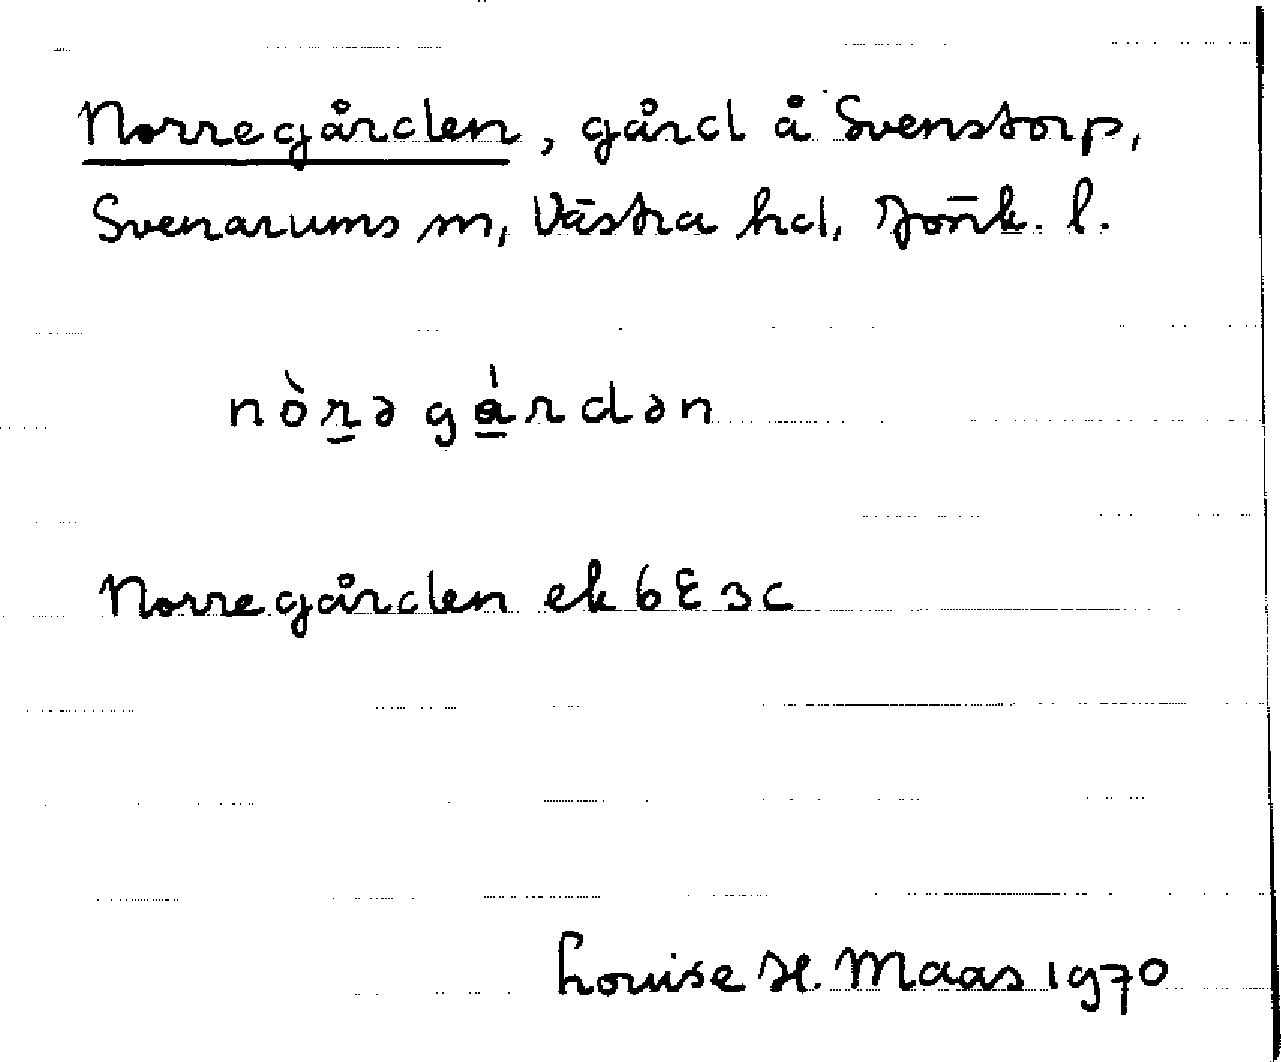 Norregården, gård å Svenstorp,
Svenarums sn, Västra hd, Jönk. l.
nòr̲ə gá̲rdən
Norregården ek 6E3c
Louise H. Maas 1970